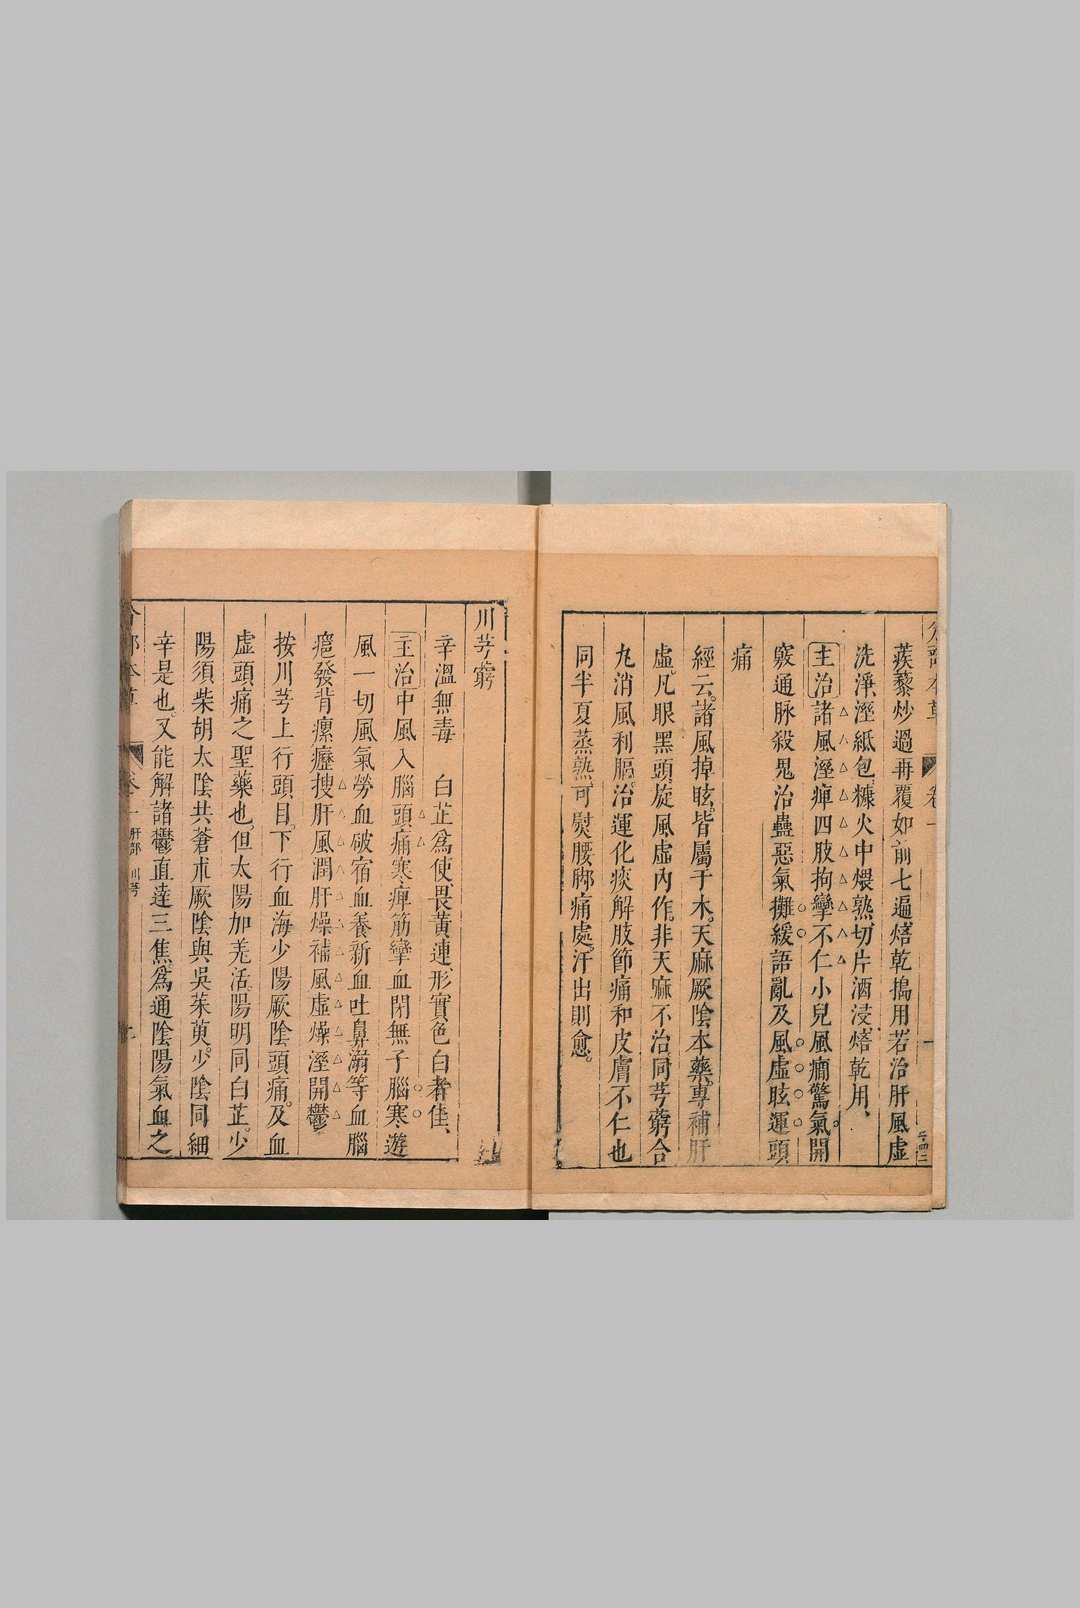 蒺藜炒過再覆如前七遍焙乾搗用若治肝風虛
洗淨溼紙包糠火中煨熟切片酒浸焙乾用、
主治諸風溼痺四肢拘攣不仁小兒風癎驚氣開
竅通脉殺鬼治蠱惡氣攤緩語亂及風虛眩運頭
痛
經云。諸風掉眩。皆屬于木。天麻厥陰本藥專補肝
虛。凡眼黑頭旋風虛內作。非天麻不治同芎藭合
丸消風利膈。治運化痰解肢節痛和皮膚不仁也
同半夏蒸熟可熨腰脚痛處。汗出則愈。
川芎藭
辛溫無毒 白芷爲使畏黃連形實色白者佳、
主治中風入腦頭痛寒痺筋攣血閉無子腦寒遊
風一切風氣勞血破宿血養新血吐鼻溺等血腦
癰發背瘰癧搜肝風潤肝燥補風虛燥溼開鬱
按川芎上行頭目。下行血海少陽厥陰頭痛。及血
虛頭痛之聖藥也但太陽加羌活陽明同白芷。少
陽須柴胡太陰共蒼朮厥陰與吳茱萸。少陰同細
辛是也。又能解諸鬱直達三焦爲通陰陽氣血之
分部本草 卷一 肝部 川芎